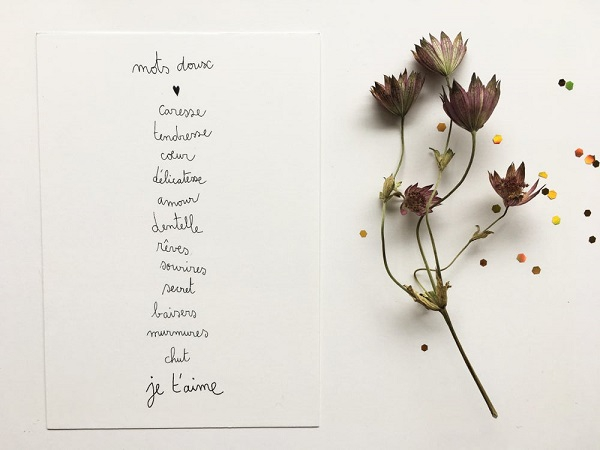 mots doux
♥
caresse
tendresse
cœur
délicatesse
amour
dentelle
rêves
sourires
secret
baisers
murmures
chut
je t'aime